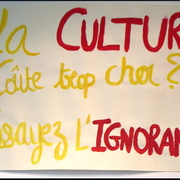 La CULTUR
Coûte trop cher ?
Essayez L'IGNORAN